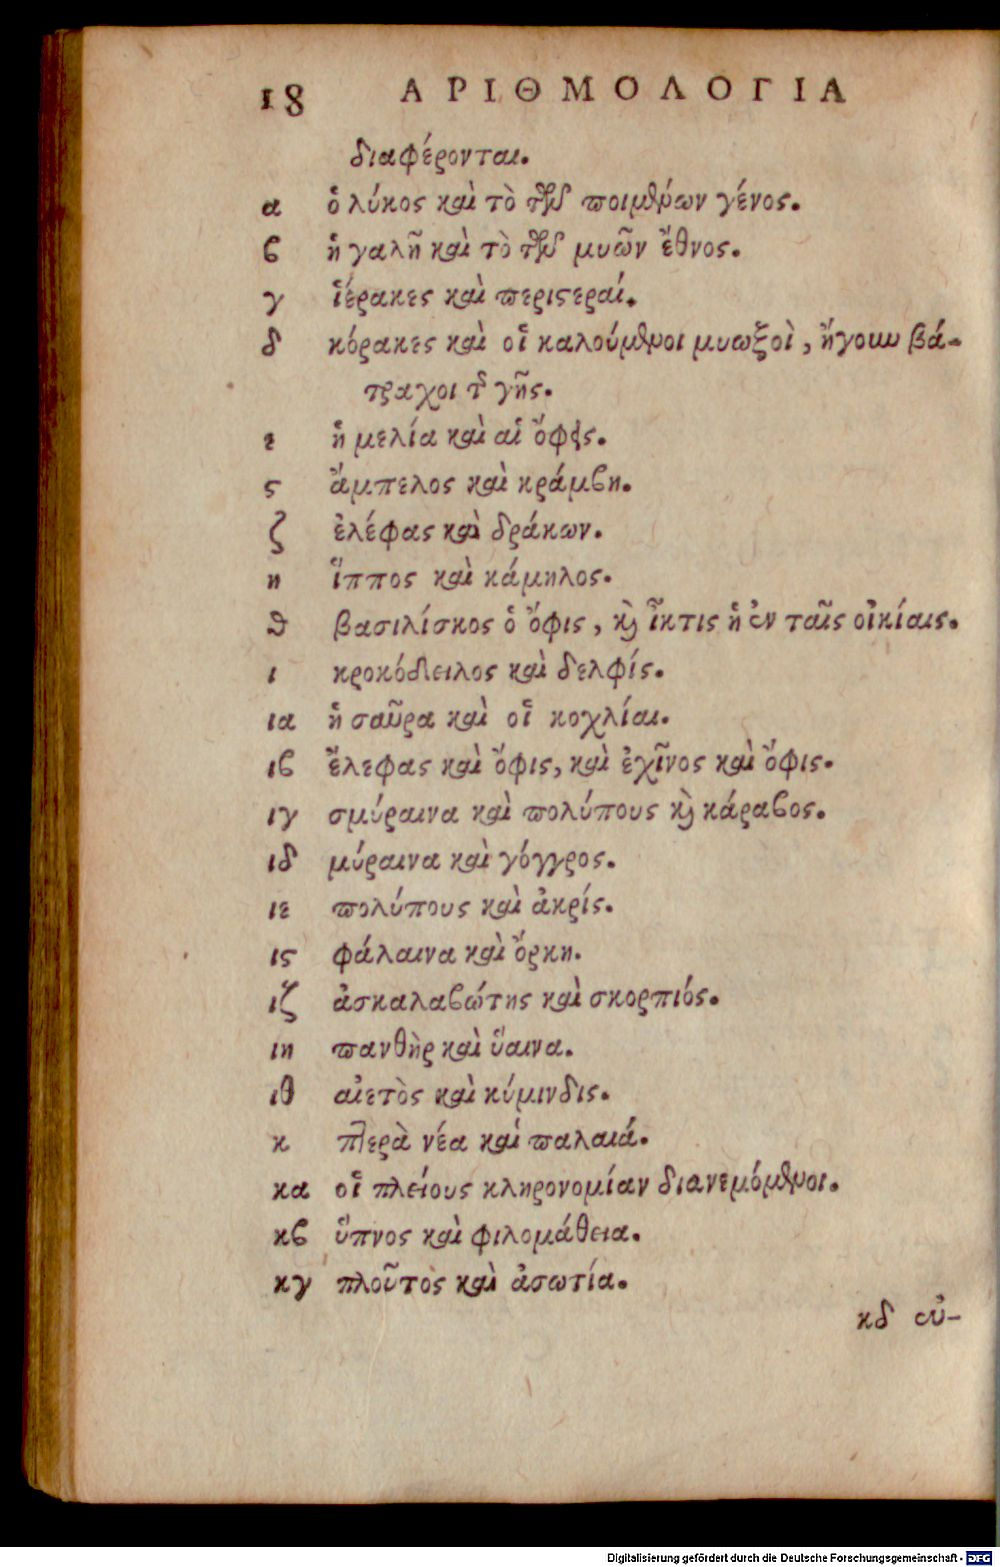 18 ΑΡΙΘΜΟΛΟΓΙΑ
διαφέρονται.
α ὁ λύκος καὶ τὸ τῶν ποιμένων γένος.
ϐ ἡ γαλῆ καὶ τὸ τῶν μυῶν ἔθνος.
γ ἱέρακες καὶ περιϛεραί.
δ κόρακες καὶ οἱ καλούμενοι μυωξοὶ, ἤγουν βά-
τραχοι τῆς γῆς.
ε ἡ μελία καὶ αἱ ὄφεις.
ϛ ἄμπελος καὶ κράμϐη.
ζ ἐλέφας καὶ δράκων.
η ἵππος καὶ κάμηλος.
θ βασιλίσκος ὁ ὄφις, καὶ ἴκτις ἡ ἐν ταῖς οἰκίαις.
ι κροκόδειλος καὶ δελφίς.
ια ἡ σαῦρα καὶ οἱ κοχλίαι.
ιϐ ἔλεφας καὶ ὄφις, καὶ ἐχῖνος καὶ ὄφις.
ιγ σμύραινα καὶ πολύπους καὶ κάραϐος.
ιδ μύραινα καὶ γόγγρος.
ιε πολύπους καὶ ἀκρίς.
ιϛ φάλαινα καὶ ὄρκη.
ιζ ἀσκαλαϐώτης καὶ σκορπιός.
ιη πανθὴρ καὶ ὕαινα.
ιθ αἰετὸς καὶ κύμινδις.
κ πτερὰ νέα καὶ παλαιά.
κα οἱ πλείους κληρονομίαν διανεμόμενοι.
κϐ ὕπνος καὶ φιλομάθεια.
κγ πλοῦτος καὶ ἀσωτία.
κδ εὐ-
Digitalisierung gefördert durch die Deutsche Forschungsgemeinschaft - DFG